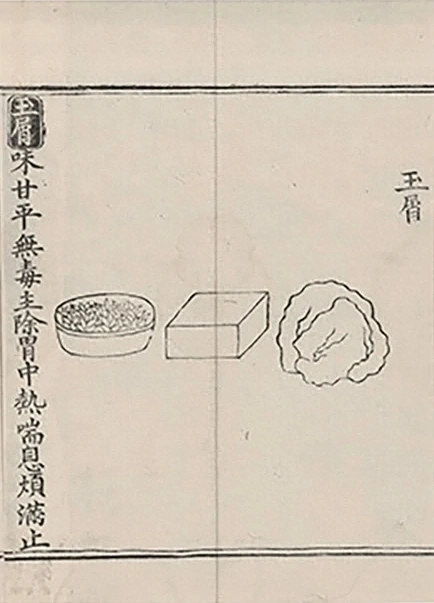 玉屑
玉屑味甘平無毒主除胃中熱喘息煩滿止